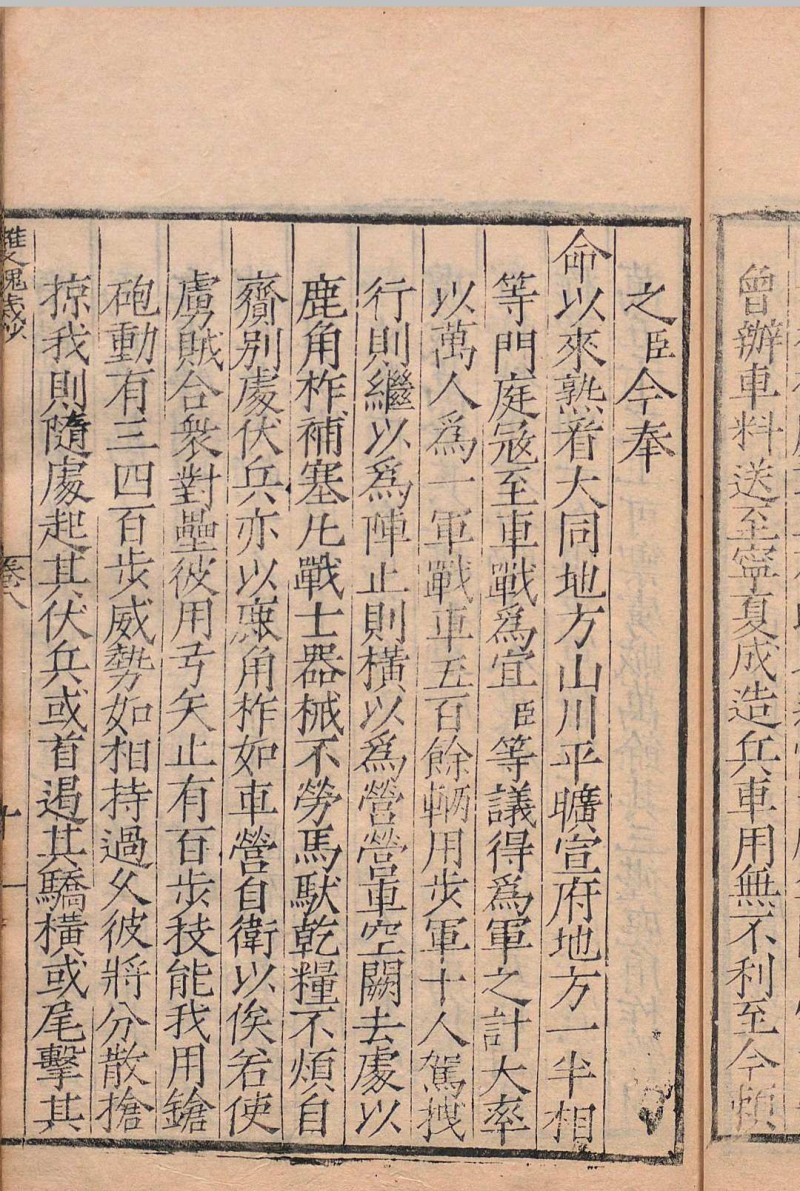 曾辦車料送至寧夏成造兵車用無不利至今頼
之臣今奉
命以來熟看大同地方山川平曠宣府地方一半相
等門庭寇至車戰爲宜臣等議得爲軍之計大率
以萬人爲一軍戰車五百餘輛用步軍十人駕拽
行則縱以爲陣止則橫以爲營營車空闕去處以
鹿角柞補塞凡戰士器械不勞馬馱乾糧不煩自
齎別處伏兵亦以鹿角柞如車營自衛以俟若使
虜賊合衆對壘彼用弓矢止有百步技能我用鎗
砲動有三四百步威勢如相持過久彼將分散搶
掠我則隨處起其伏兵或首遏其驕橫或尾擊其
卷八
十一